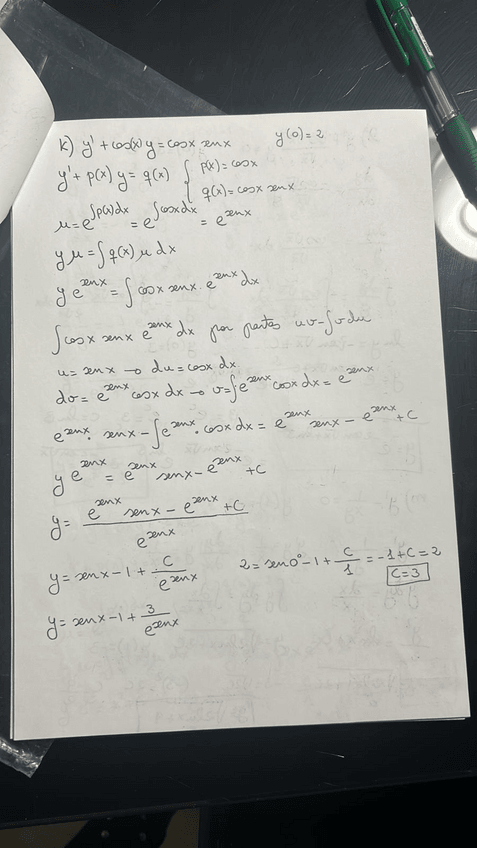 k) y' + cos(x) y = cosx senx   y(0) = 2
y' + p(x) y = q(x) { p(x) = cosx
q(x) = cosx senx
μ = e^∫p(x)dx = e^∫cosxdx = e^senx
y μ = ∫ q(x) μ dx
y e^senx = ∫ cosx senx · e^senx dx
∫ cosx senx e^senx dx por partes uv - ∫ v du
u = senx → du = cosx dx
dv = e^senx cosx dx → v = ∫ e^senx cosx dx = e^senx
e^senx · senx - ∫ e^senx · cosx dx = e^senx senx - e^senx + C
y e^senx = e^senx senx - e^senx + C
y = (e^senx senx - e^senx + C) / e^senx
y = senx - 1 + C/e^senx   2 = sen0° - 1 + C/1 = -1 + C = 2
C = 3
y = senx - 1 + 3/e^senx